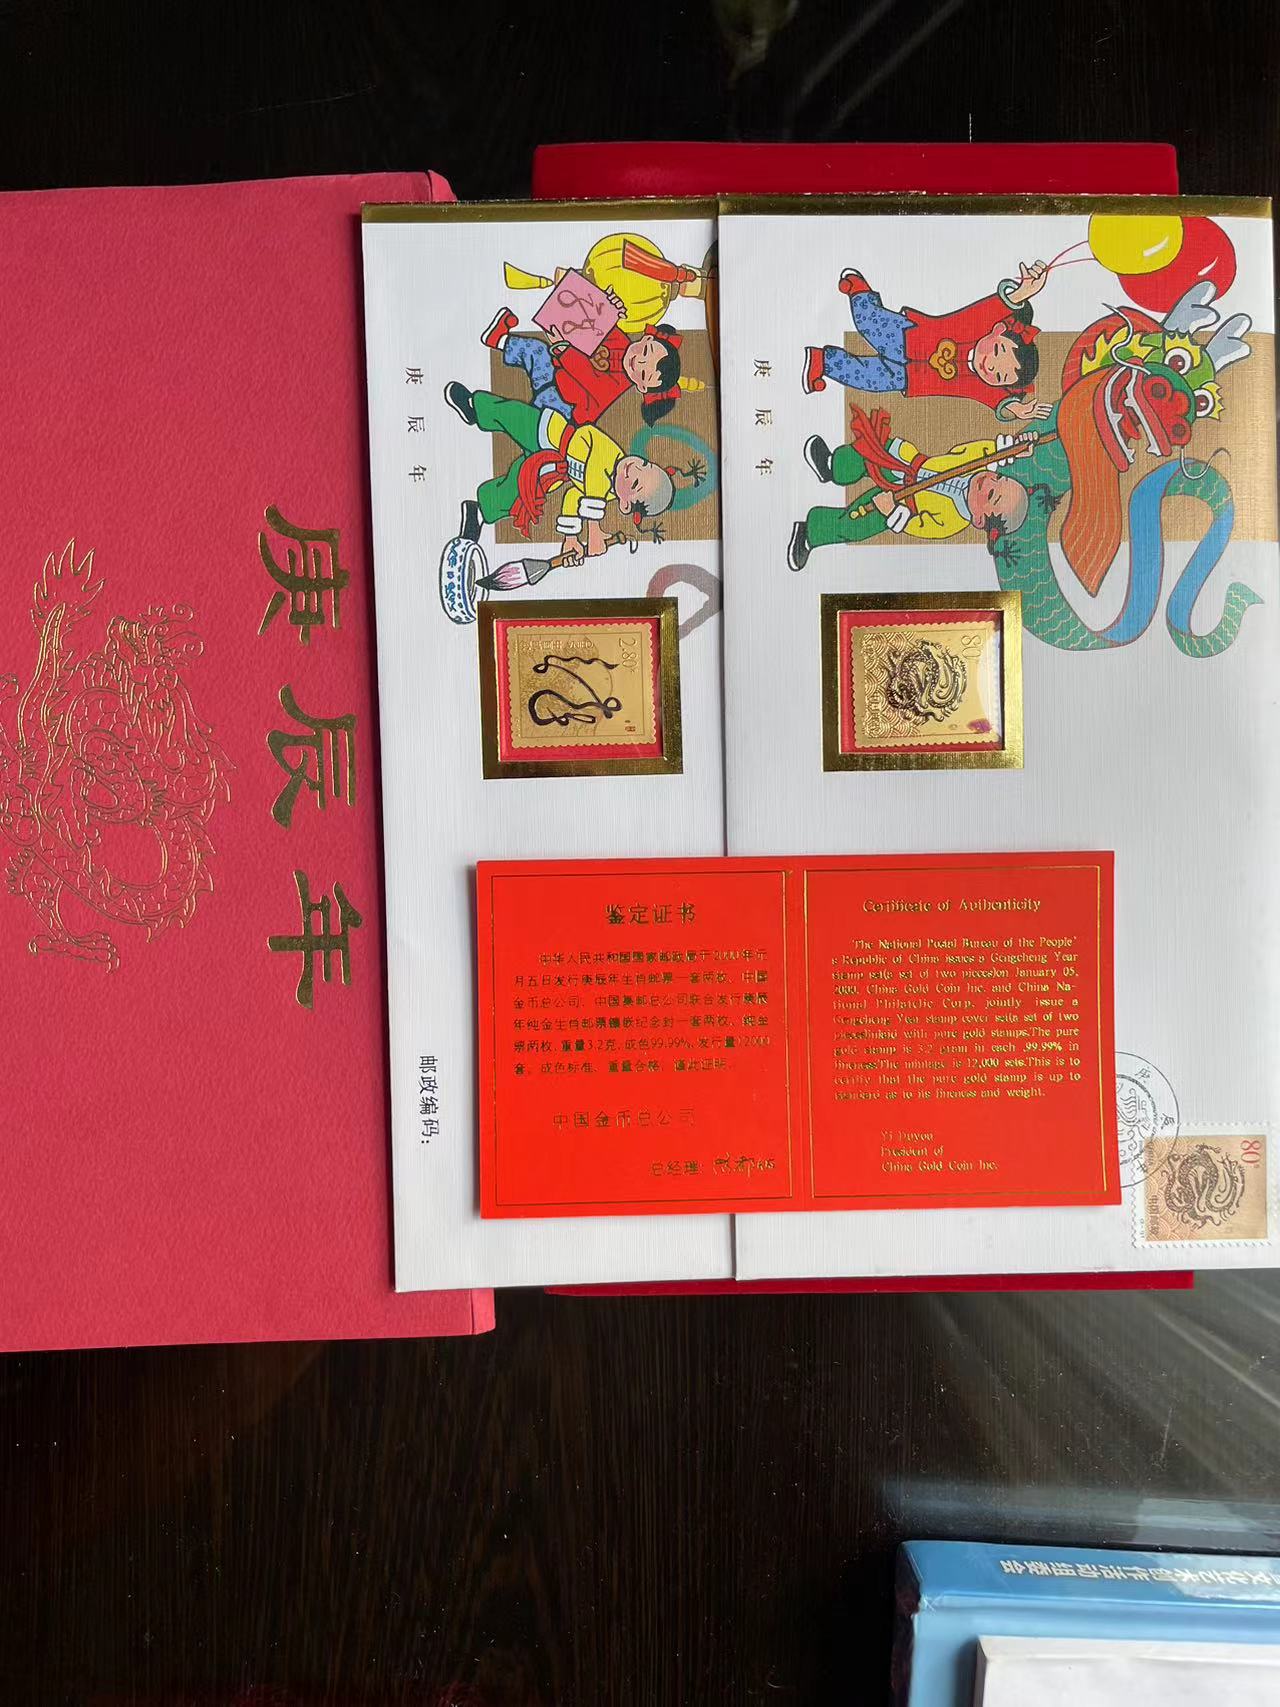 庚辰年
庚辰年
庚辰年
2.80
80
邮政编码：
鉴定证书
中华人民共和国国家邮政局于2000年元
月五日发行庚辰年生肖邮票一套两枚，中国
金币总公司、中国集邮总公司联合发行庚辰
年纯金生肖邮票镶嵌纪念封一套两枚，纯金
票两枚，重量3.2克，成色99.99%，发行量12000
套。成色标准，重量合格，谨此证明。
中国金币总公司
总经理：
Certificate of Authenticity
The National Postal Bureau of the People'
s Republic of China issues a Gengcheng Year
stamp set(a set of two pieces)on January 05,
2000. China Gold Coin Inc. and China Na-
tional Philatelic Corp. jointly issue a
Gengcheng Year stamp cover set(a set of two
pieces)inlaid with pure gold stamps.The pure
gold stamp is 3.2 gram in each ,99.99% in
fineness.The mintage is 12,000 sets.This is to
certify that the pure gold stamp is up to
standard as to its fineness and weight.
Yi Duyou
President of
China Gold Coin Inc.
80
中国邮政
文化艺术创作活动组委会